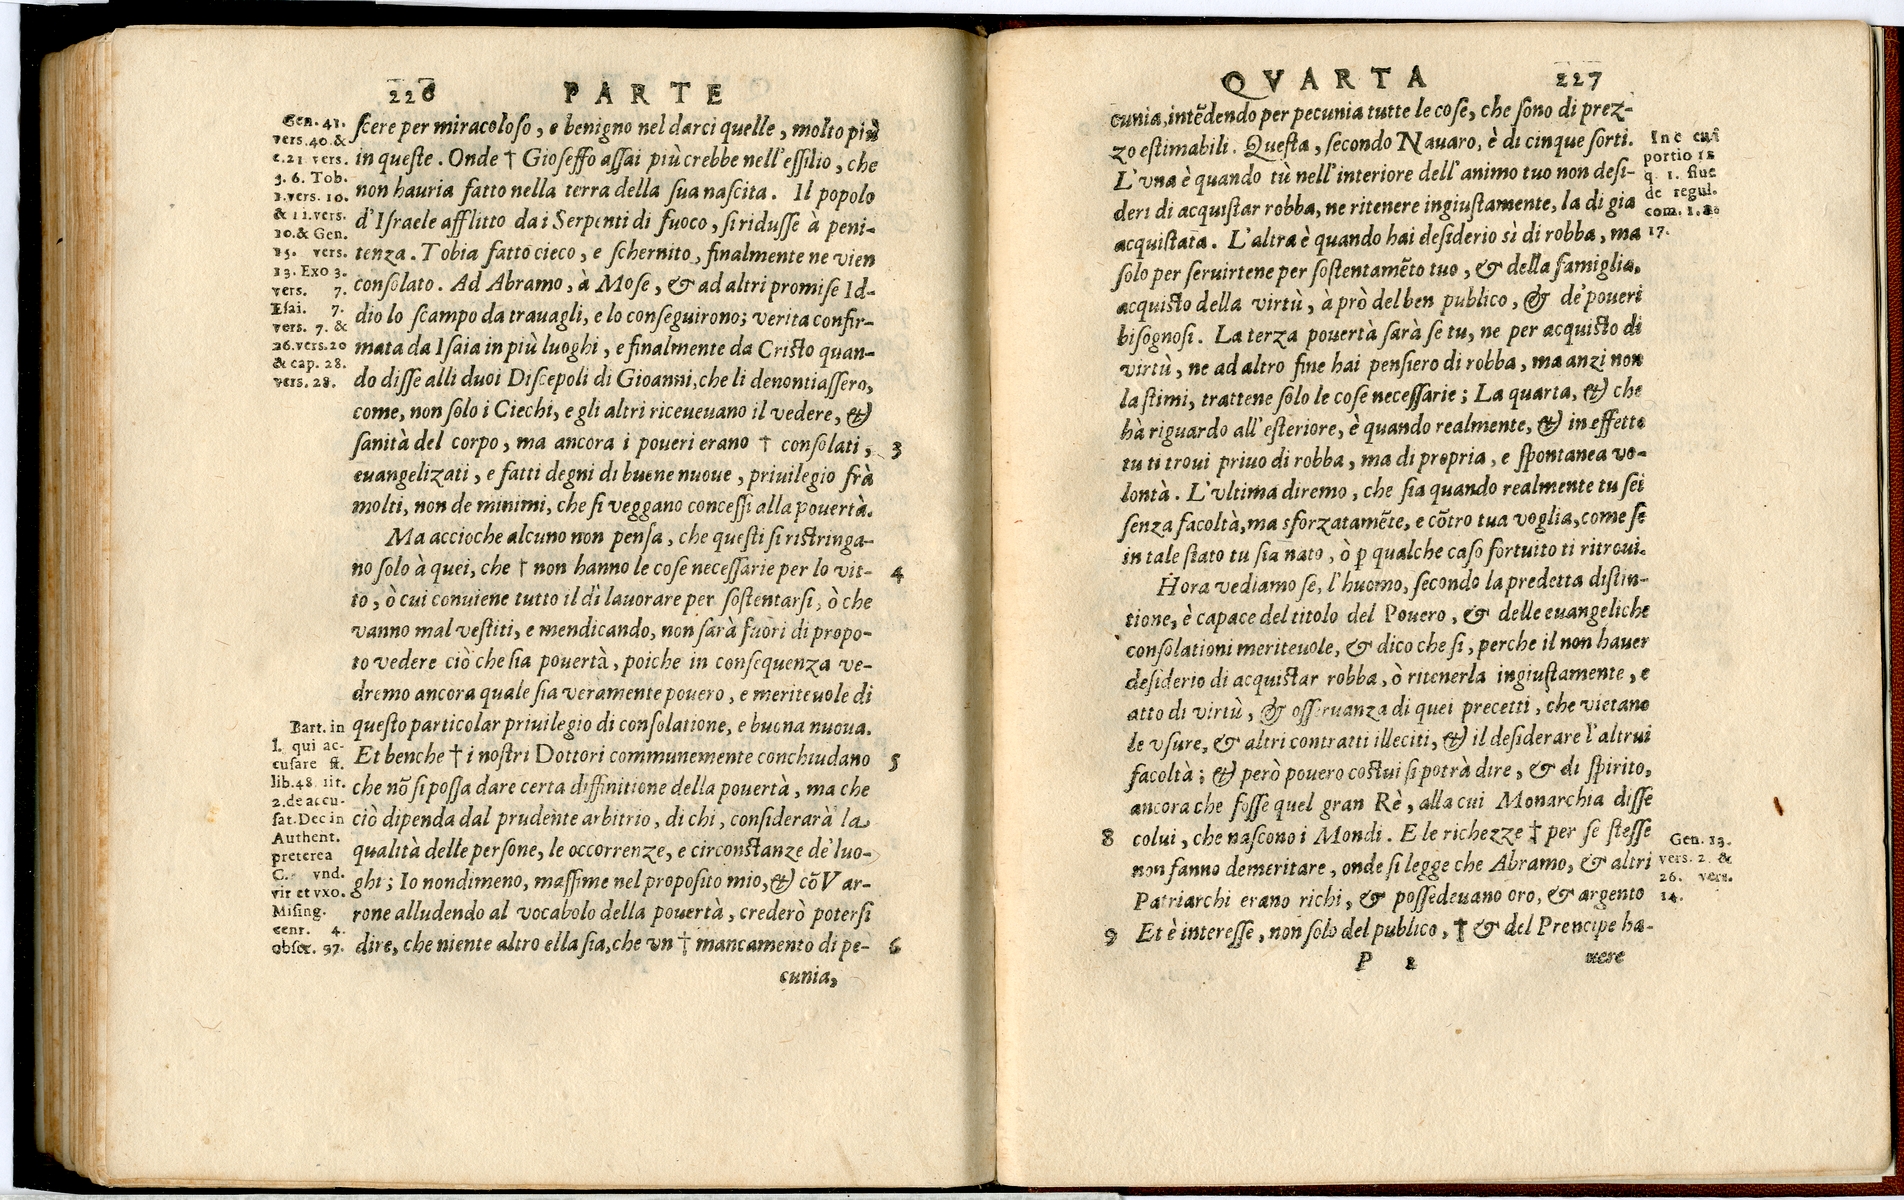 226 PARTE
ſcere per miracoloſo, e benigno nel darci quelle, molto più
in queſte. Onde † Gioſeffo aſſai più crebbe nell'eſſilio, che
non hauria fatto nella terra della ſua naſcita. Il popolo
d'Iſraele afflitto dai Serpenti di fuoco, ſi riduſſe à peni-
tenza. Tobia fatto cieco, e ſchernito, finalmente ne vien
conſolato. Ad Abramo, à Moſe, & ad altri promiſe Id-
dio lo ſcampo da trauagli, e lo conſeguirono; verita confir-
mata da Iſaia in più luoghi, e finalmente da Criſto quan-
do diſſe alli duoi Diſcepoli di Gioanni, che li denontiaſſero,
come, non ſolo i Ciechi, e gli altri riceueuano il vedere, &
ſanità del corpo, ma ancora i poueri erano † conſolati, 3
euangelizati, e fatti degni di buene nuoue, priuilegio frà
molti, non de minimi, che ſi veggano conceſſi alla pouertà.
Ma accioche alcuno non penſa, che queſti ſi riſtringa-
no ſolo à quei, che † non hanno le coſe neceſſarie per lo vit- 4
to, ò cui conuiene tutto il dì lauorare per ſoſtentarſi, ò che
vanno mal veſtiti, e mendicando, non ſarà fuori di propo-
to vedere ciò che ſia pouertà, poiche in conſequenza ve-
dremo ancora quale ſia veramente pouero, e meriteuole di
queſto particolar priuilegio di conſolatione, e buona nuoua.
Et benche † i noſtri Dottori communemente conchiudano 5
che nō ſi poſſa dare certa diffinitione della pouertà, ma che
ciò dipenda dal prudente arbitrio, di chi, conſiderarà la
qualità delle perſone, le occorrenze, e circonſtanze de' luo-
ghi; Io nondimeno, maſſime nel propoſito mio, & cō Var-
rone alludendo al vocabolo della pouertà, crederò poterſi
dire, che niente altro ella ſia, che un † mancamento di pe- 6
cunia,
Gen. 41.
vers. 40. &
c. 21 vers.
3. 6. Tob.
vers. 10.
& 11. vers.
10. & Gen.
vers.
13. Exo 3.
vers. 7.
Eſai. 7.
vers. 7. &
26. vers. 20
& cap. 28.
vers. 28.
Bart. in
l. qui ac-
cuſare ff.
lib. 48. tit.
2. de accu-
ſat. Dec in
Authent.
preterea
C. vnd.
vir et vxo.
Miſing.
cent. 4.
obſer. 97.
QVARTA 227
cunia, intēdendo per pecunia tutte le coſe, che ſono di prez-
zo eſtimabili. Queſta, ſecondo Nauaro, è di cinque ſorti.
L'vna è quando tù nell'interiore dell'animo tuo non deſi-
deri di acquiſtar robba, ne ritenere ingiuſtamente, la di gia
acquiſtata. L'altra è quando hai deſiderio sì di robba, ma
ſolo per ſeruirtene per ſoſtentamēto tuo, & della famiglia,
acquiſto della virtù, à prò del ben publico, & de' poueri
biſognoſi. La terza pouertà ſarà ſe tu, ne per acquiſto di
virtù, ne ad altro fine hai penſiero di robba, ma anzi non
la ſtimi, trattene ſolo le coſe neceſſarie; La quarta, & che
hà riguardo all'eſteriore, è quando realmente, & in effetto
tu ti troui priuo di robba, ma di propria, e ſpontanea vo-
lontà. L'vltima diremo, che ſia quando realmente tu ſei
ſenza facoltà, ma sforzatamēte, e cōtro tua voglia, come ſe
in tale ſtato tu ſia nato, ò ꝑ qualche caſo fortuito ti ritroui.
Hora vediamo ſe, l'huomo, ſecondo la predetta diſtin-
tione, è capace del titolo del Pouero, & delle euangeliche
conſolationi meriteuole, & dico che ſi, perche il non hauer
deſiderio di acquiſtar robba, ò ritenerla ingiuſtamente, e
atto di virtù, & oſſeruanza di quei precetti, che vietano
le vſure, & altri contratti illeciti, & il deſiderare l'altrui
facoltà; & però pouero coſtui ſi potrà dire, & di ſpirito,
ancora che foſſe quel gran Rè, alla cui Monarchia diſſe
8 colui, che naſcono i Mondi. E le richezze † per ſe ſteſſe
non fanno demeritare, onde ſi legge che Abramo, & altri
Patriarchi erano richi, & poſſedeuano oro, & argento
9 Et è intereſſe, non ſolo del publico, † & del Prencipe ha-
P 2 uere
In c cuī
portio 12
q. 1. ſiue
de regul.
com. 1.
17.
Gen. 13.
vers. 2. &
26. vers.
14.